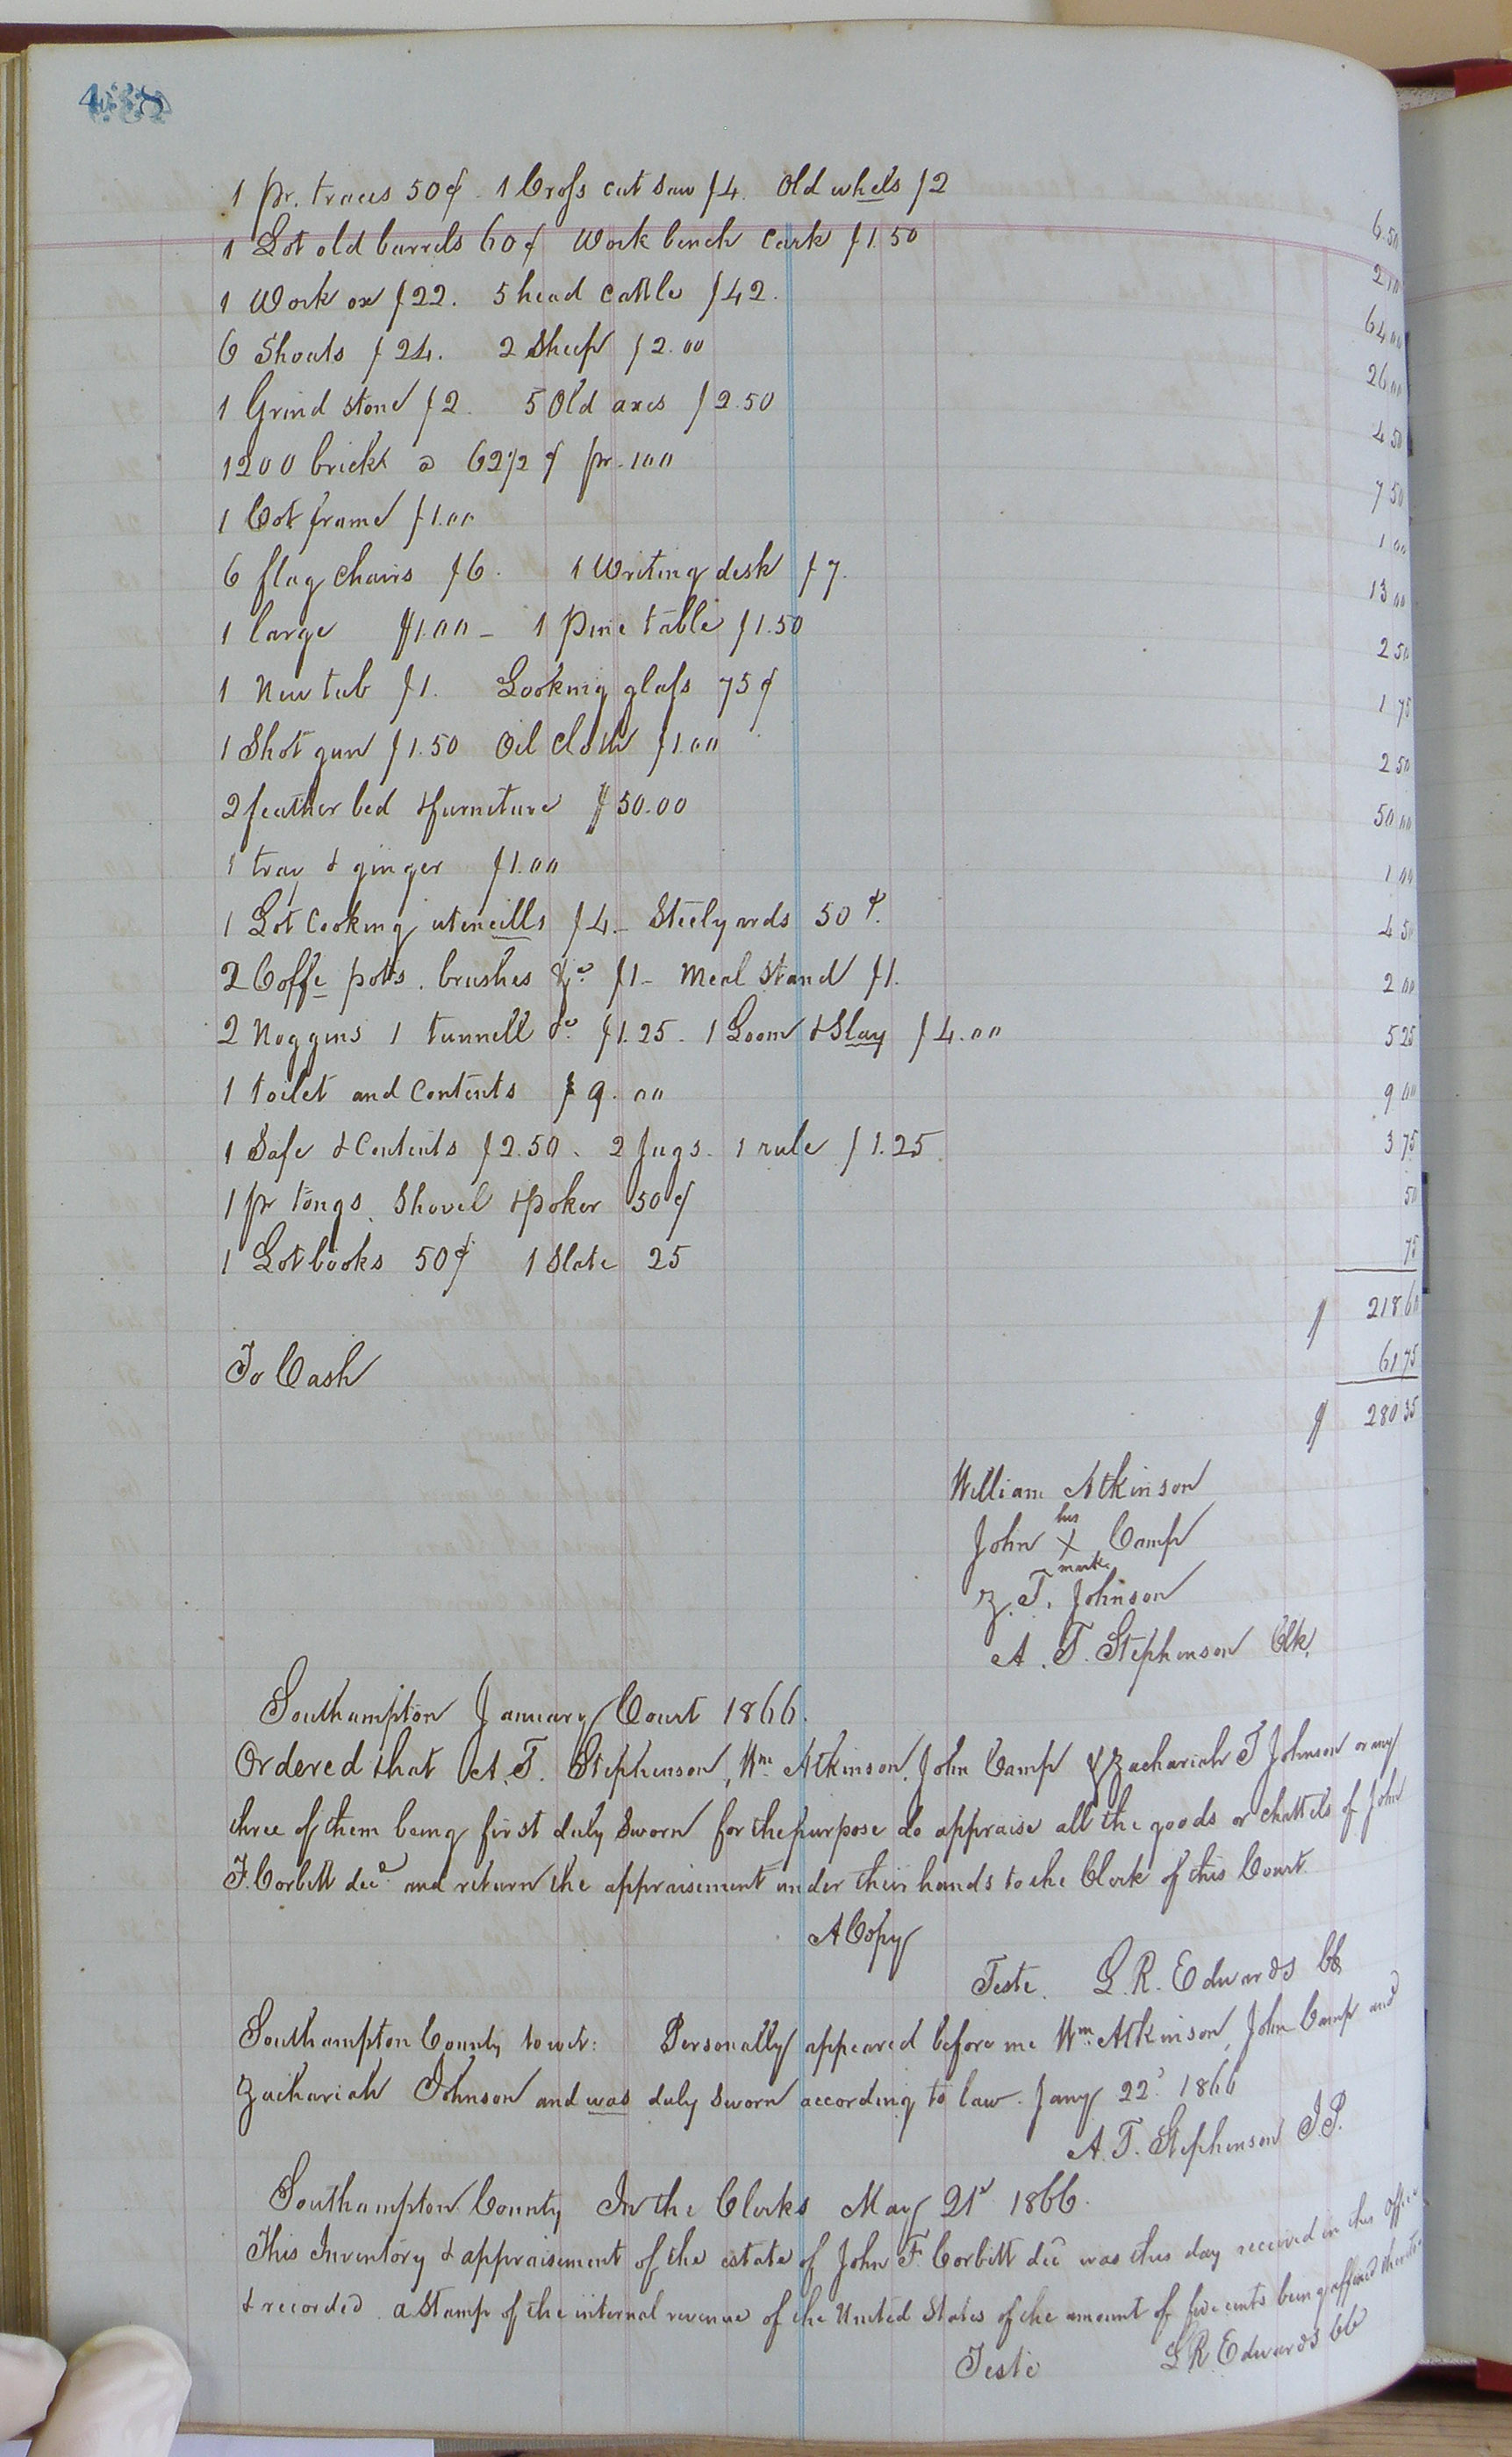 438
1 pr. traces 50¢. 1 Cross cut saw $4. Old whels $2 6.50
1 Lot old barrels 60¢ Work bench Cask $1.50 2 10
1 Work ox $22. 5 head Cattle $42. 64 00
6 Shoats $24. 2 Sheep $2.00 26 00
1 Grind stone $2. 5 Old axes $2.50 4 50
1200 bricks @ 62 1/2 ¢ pr. 100 7 50
1 Cot frame $1.00 1 00
6 flag chairs $6. 1 Writing desk $7. 13 00
1 large $1.00 - 1 Pine table $1.50 2 50
1 New tub $1. Looking glass 75¢ 1 75
1 Shot gun $1.50 Oil Cloth $1.00 2 50
2 feather bed & furneture $50.00 50 00
1 tray & ginger $1.00 1 00
1 Lot Cooking utencills $4 - Steelyards 50¢. 4 50
2 Coffe potts. brushes &c $1 - Meal Stand $1. 2 00
2 Noggins 1 tunnell &c $1.25. 1 Loom & Slay $4.00 5 25
1 toilet and Contents $9.00 9 00
1 Safe & Contents $2.50. 2 Jugs. 1 rule $1.25 3 75
1 pr tongs, Shovel & poker 50¢ 50
1 Lot books 50¢ 1 Slate 25 75
$ 218 60
To Cash 61 75
$ 280 35
William Atkinson
his
John X Camp
mark
Z. T. Johnson
A. T. Stephenson Clk.
Southampton January Court 1866.
Ordered that A. T. Stephenson, Wm Atkinson, John Camp & Zachariah T Johnson or any
three of them being first duly sworn for the purpose do appraise all the goods or chattels of John
F. Corbitt decd and return the appraisement under their hands to the Clerk of this Court
A Copy
Teste. L. R. Edwards CC
Southampton County to wit: Personally appeared before me Wm Atkinson, John Camp and
Zachariah Johnson and was duly sworn according to law. Jany 22d 1866
A. T. Stephenson J.P.
Southampton County In the Clerks May 21st 1866.
This Inventory & appraisement of the estate of John F. Corbitt decd was this day received in this Office
& recorded. a Stamp of the internal revenue of the United States of the amount of five cents being affixed thereto
Teste L R Edwards CC